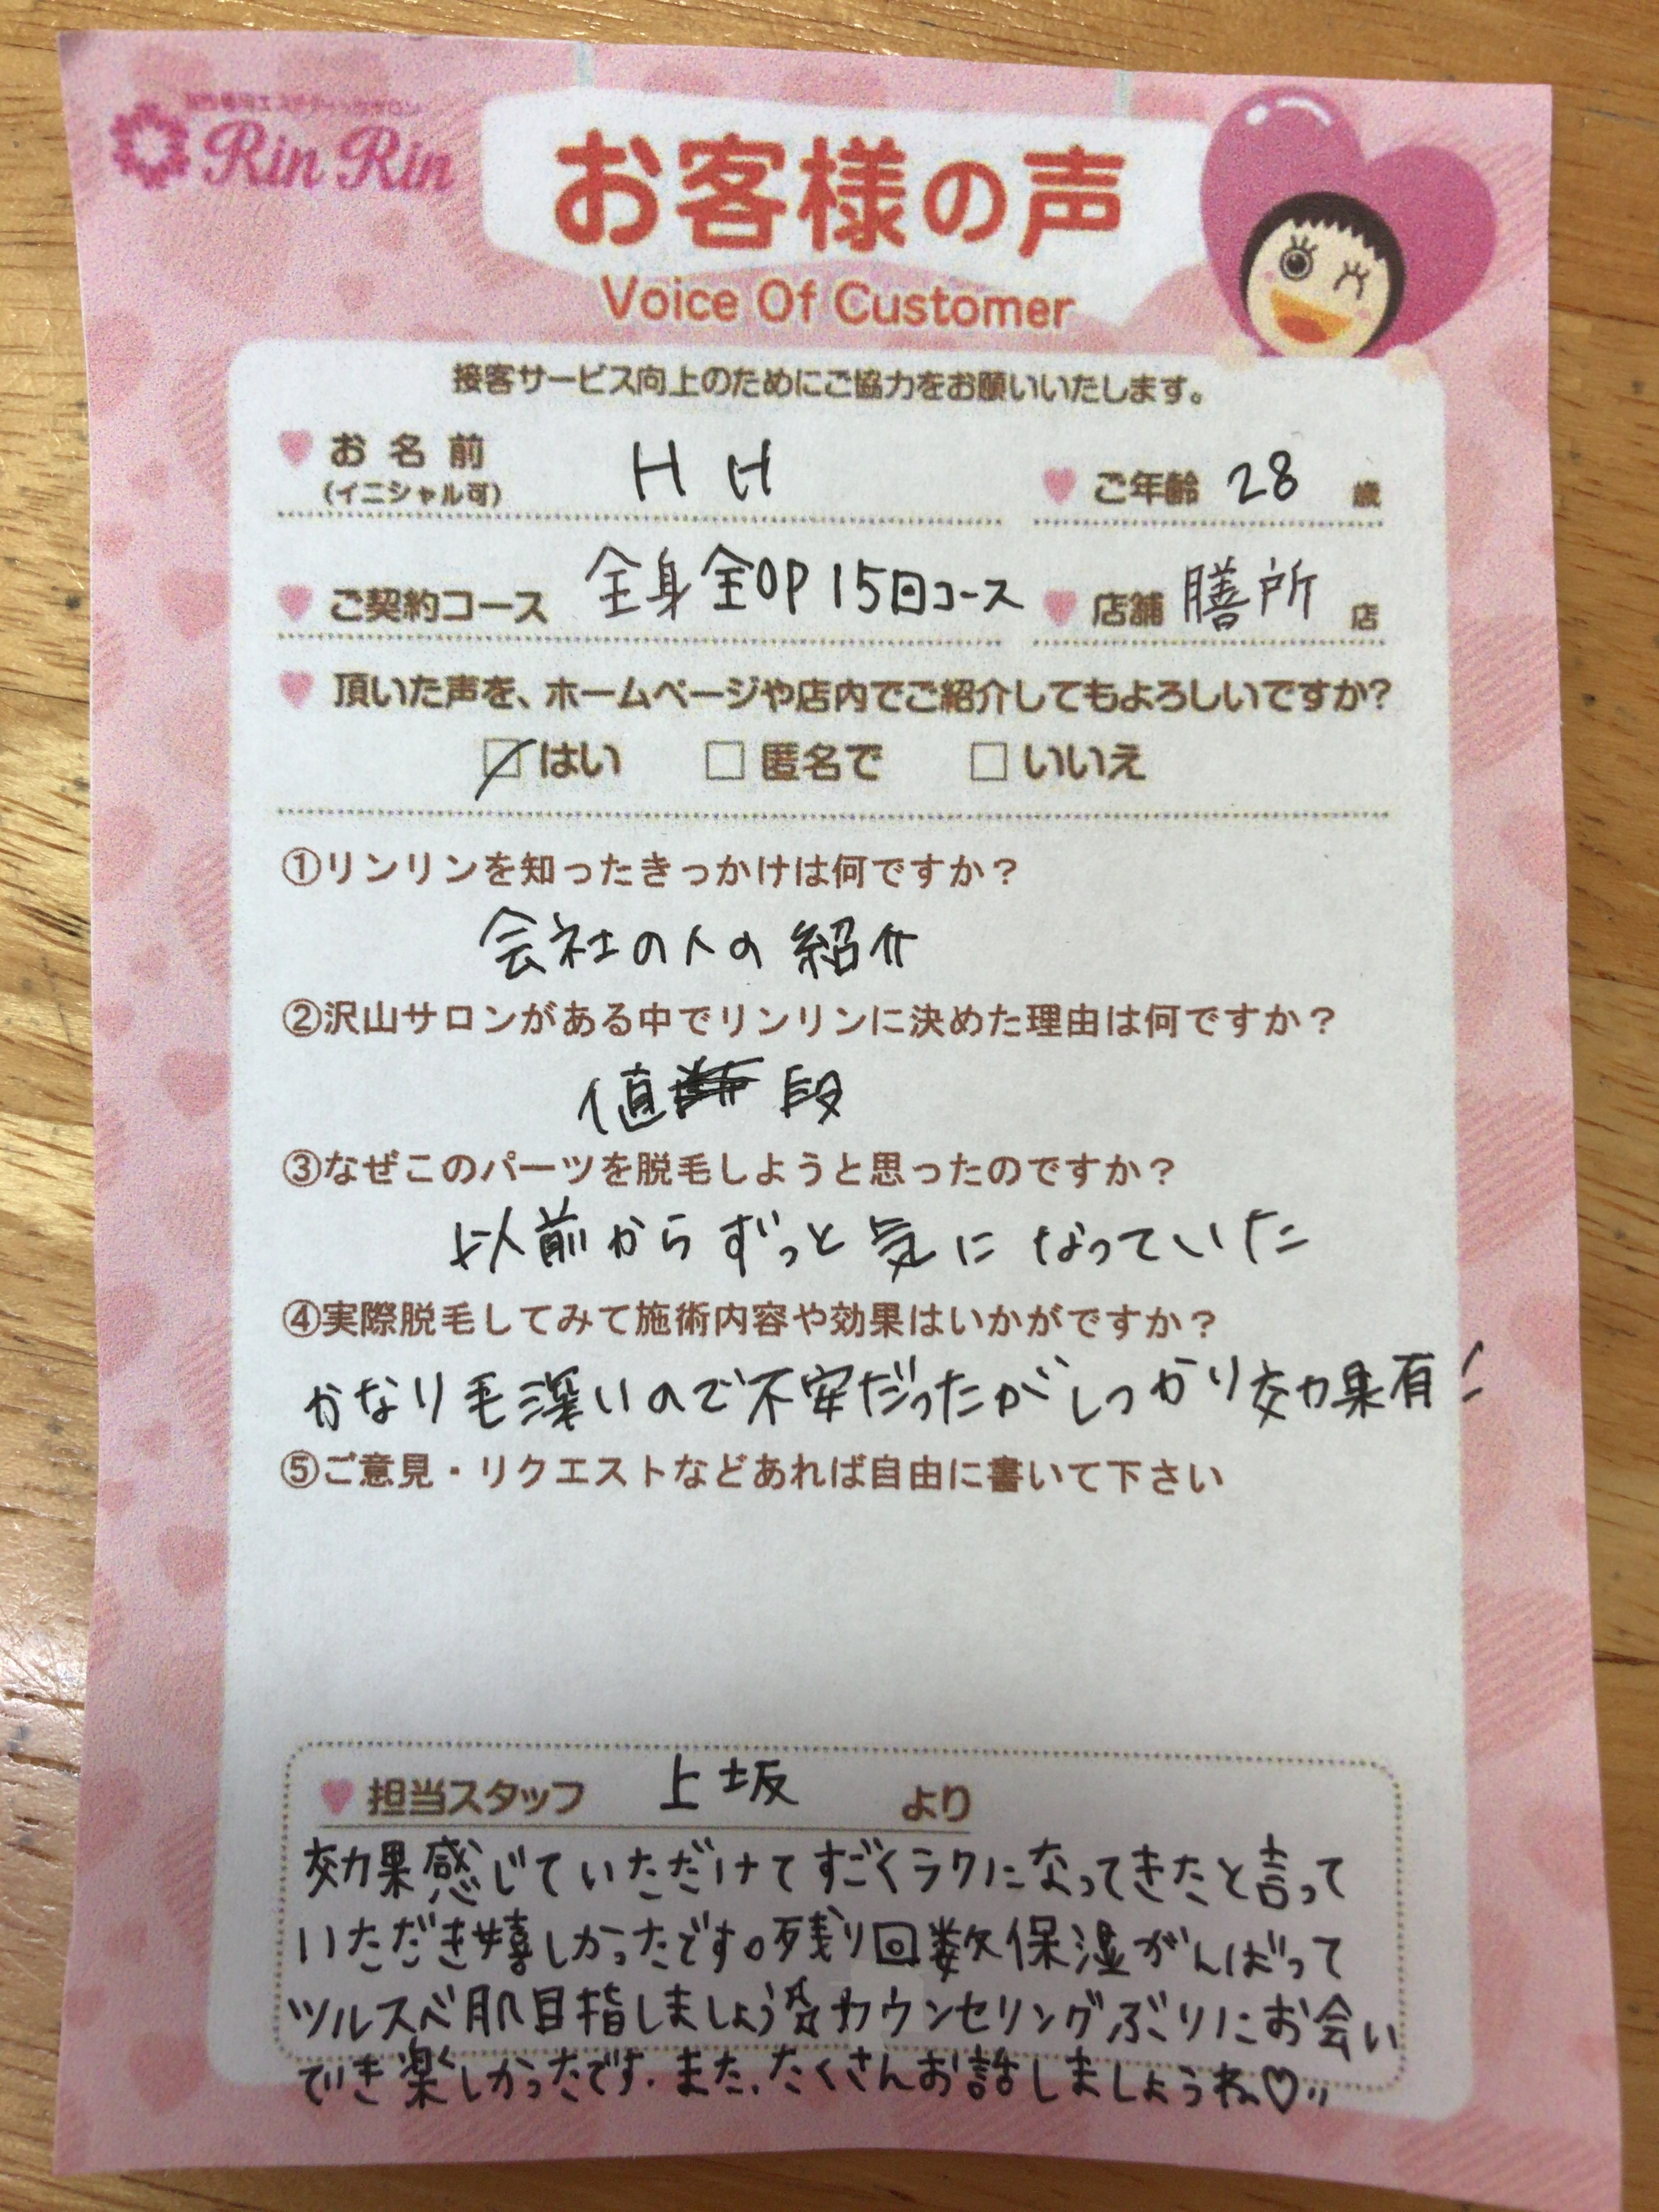 Rin Rin
お客様の声
Voice Of Customer
接客サービス向上のためにご協力をお願いいたします。
お名前 H H ご年齢 28 歳
(イニシャル可)
ご契約コース 全身全OP 15回コース 店舗 膳所 店
頂いた声を、ホームページや店内でご紹介してもよろしいですか?
はい 匿名で いいえ
①リンリンを知ったきっかけは何ですか？
会社の人の紹介
②沢山サロンがある中でリンリンに決めた理由は何ですか？
値段
③なぜこのパーツを脱毛しようと思ったのですか？
以前からずっと気になっていた
④実際脱毛してみて施術内容や効果はいかがですか？
かなり毛深いので不安だったがしっかり効果有!
⑤ご意見・リクエストなどあれば自由に書いて下さい
担当スタッフ 上坂 より
効果感じていただけてすごくラクになってきたと言って
いただき嬉しかったです。残り回数保湿がんばって
ツルスベ肌目指しましょう☆カウンセリングぶりにお会い
でき楽しかったです.また、たくさんお話しましょうね♡〃